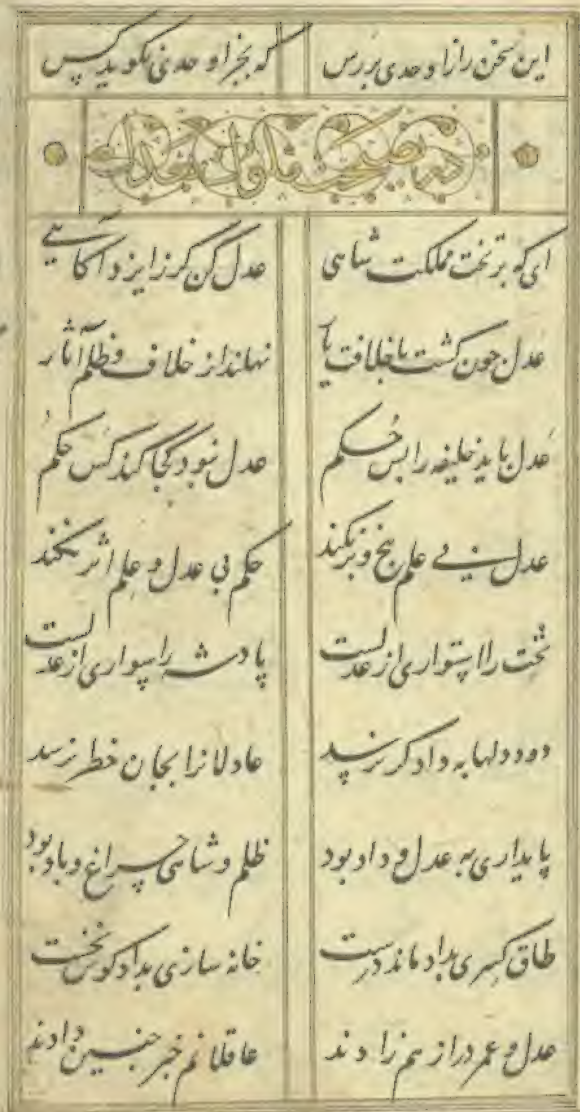 این سخن را ز اوحدی بررس که بجز اوحدی نکوید کس
در نصیحت ملوک بعدل
ای که بر تخت مملکت شاهی عدل کن کر ز ایزد آکاهی
عدل چون کشت با خلافت یار نهلد از خلاف و ظلم آثار
عدل باید خلیفه را پس حکم عدل نبود کجا کند کس حکم
عدل بی علم بیخ و بر نکند حکم بی عدل و علم اثر نکند
تخت را استواری از عدلست پادشه را سواری از عدلست
دود دلها به دادکر نرسد عادلانرا بجان خطر نرسد
پایداری به عدل و داد بود ظلم و شاهی چراغ و باد بود
طاق کسری بداد ماند درست خانه سازی بداد کوش نخست
عدل و عمر دراز هم زادند عاقلانم خبر چنین دادند